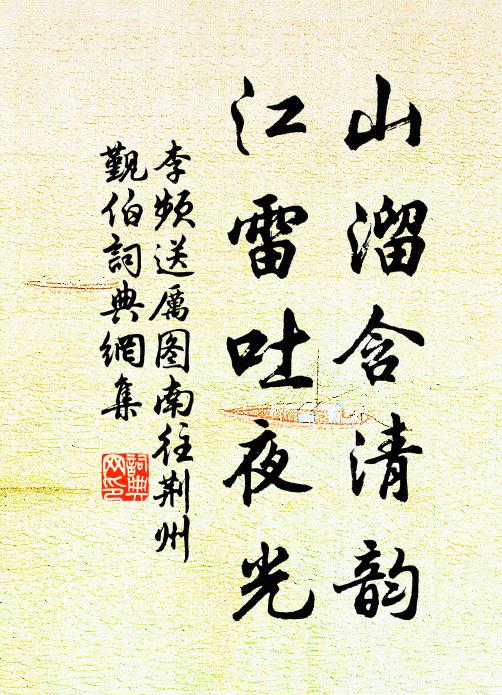 山溜含清韵
江雷吐夜光
李频送厲图南往荆州
觐伯詞典網集
詞典网印